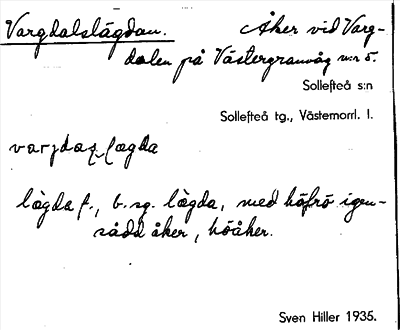 Vargdalslägdan. Åker vid Varg-
dalen på Västergranvåg nr 5.
Sollefteå s:n
Sollefteå tg., Västernorrl. l.
lägda f., b. sg. lägda, med höfrö igen-
sådd åker, höåker.
Sven Hiller 1935.